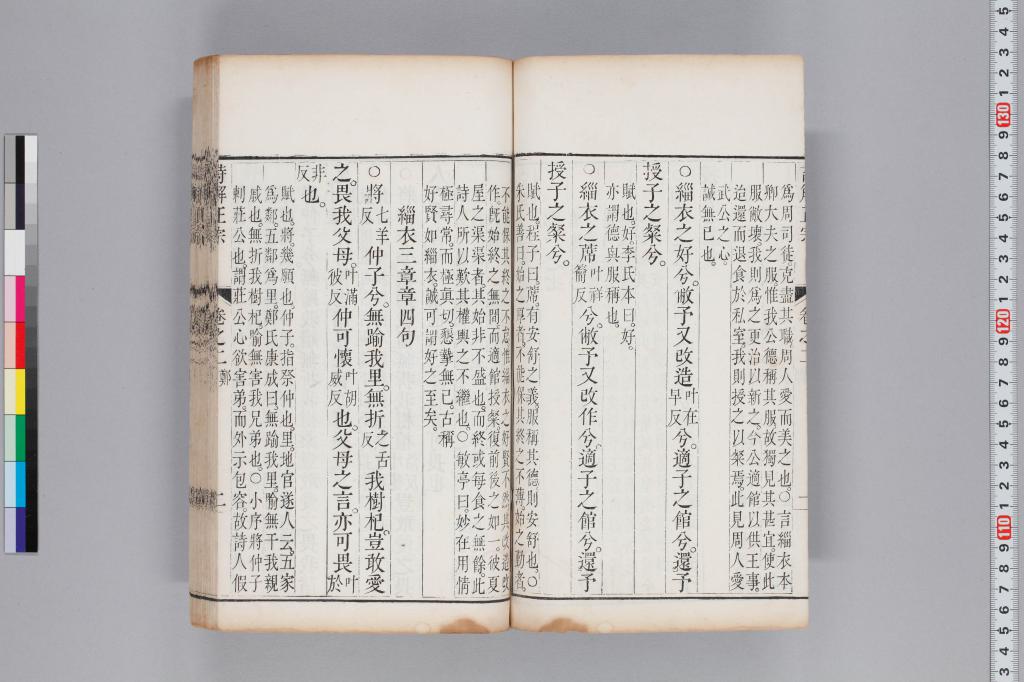 爲周司徒克盡其職周人愛而美之也○言緇衣本
卿大夫之服惟我公德稱其服故獨見其甚宜使此
服敝壞我則爲之更治以新之今公適館以供王事
治還而退食於私室我則授之以粲焉此見周人愛
武公之心
誠無已也
○緇衣之好兮敝予又改造叶在早反兮適子之館兮還予
授子之粲兮
賦也好李氏本曰好
亦謂德與服稱也
○緇衣之蓆叶祥籥反兮敝予又改作兮適子之館兮還予
授子之粲兮
賦也程子曰蓆有安舒之義服稱其德則安舒也○
朱氏善曰始之厚者不能保其終之不薄始之勤者
不能保其終之不怠惟緇衣之好賢不然其改造改
作既始終之無間而適館授粲復前後之如一彼夏
屋之渠渠者其始非不盛也而終或每食之無餘此
詩人所以歎其權輿之不繼也○敏亭曰妙在用情
極尋常而極真切懇摯無已古稱
好賢如緇衣誠可謂好之至矣
緇衣三章章四句
○將七羊反仲子兮無踰我里無折之舌反我樹杞豈敢愛
之畏我父母叶滿彼反仲可懷叶胡威反也父母之言亦可畏叶於
非反也
賦也將幾願也仲子指祭仲也里地官遂人云五家
爲鄰五鄰爲里鄭氏康成曰無踰我里喻無干我親
戚也無折我樹杞喻無害我兄弟也○小序將仲子
刺莊公也謂莊公心欲害弟而外示包容故詩人假
詩解正宗 卷之二 鄭 二